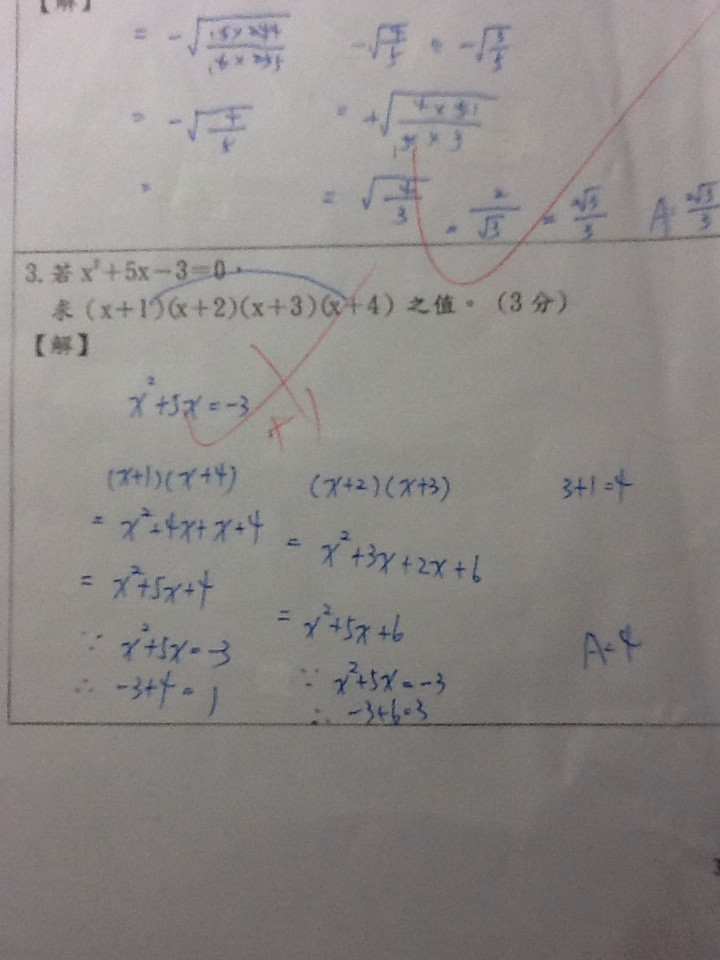 【解】
= -√
-√ = -√
= -√4/5
= +√
=
= √4/3 = 2/√3 = 2√3/3 A= 2√3/3
3. 若 x²+5x-3=0,
求 (x+1)(x+2)(x+3)(x+4) 之值。(3 分)
【解】
x²+5x=-3
(x+1)(x+4) (x+2)(x+3) 3+1=4
= x²+4x+x+4 = x²+3x+2x+6
= x²+5x+4 = x²+5x+6
∵ x²+5x=-3 ∵ x²+5x=-3 A=4
∴ -3+4=1 ∴ -3+6=3